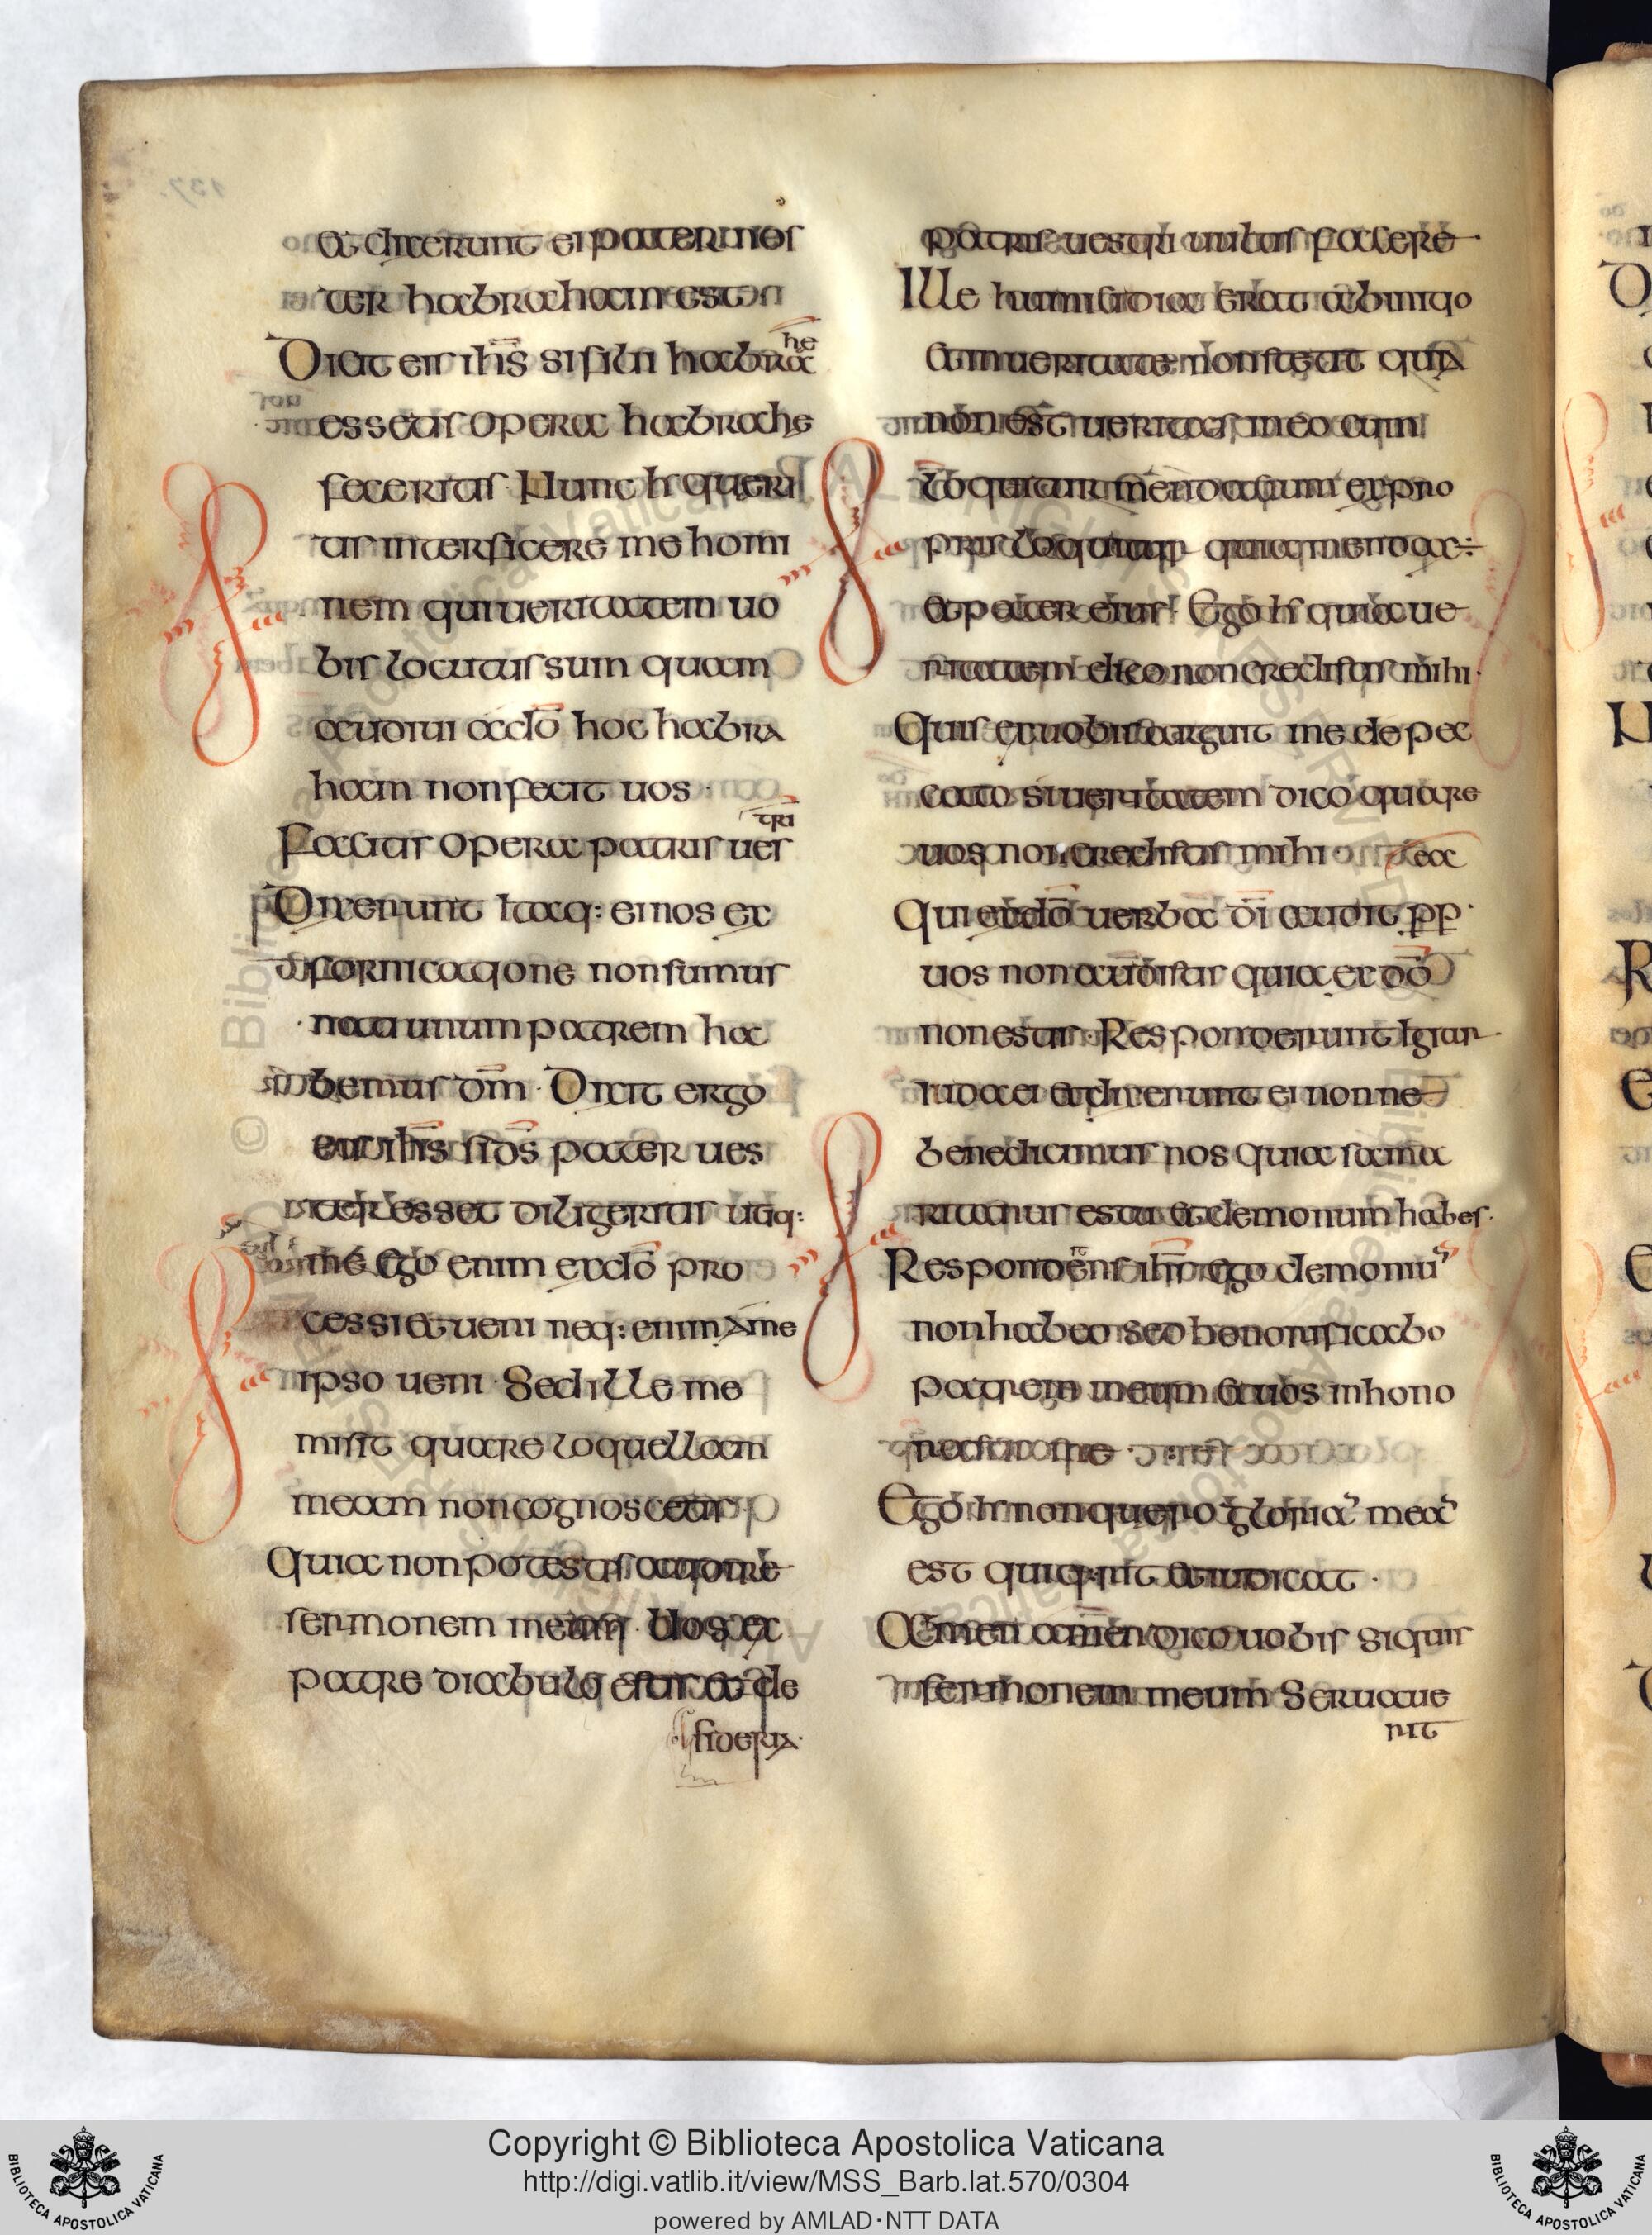 & dixerunt ei pater nos
ter habraham est
he
Dicit eis ihs si filii habra
essetis opera habrahe
faceritis Nunc h queri
tis interficere me homi
nem qui ueritatem uo
bis locutus sum quam
audiui a do hoc habra
ham non fecit uos
tri
Facitis opera patris ues
Dixerunt itaq: ei nos ex
fornicatione non sumus
nati unum patrem ha
bemus dm · Dixit ergo
eis ihs si ds pater ues
ter esset diligeritis utiq:
me Ego enim ex do pro
cessi et ueni neq: enim A me
ipso ueni · Sed ille me
misit quare loquellam
meam non cognoscetis
Quia non potestis audire
sermonem meum · Uos ex
patre diabulo estis et de
sideria·
patris uestri uultis facere
Ille humicidia erat ab initio
& in ueritate non stetit quiA
non est ueritas in eo cum
loquitur mendacium ex pro
pris loquitur quia mendax÷
& pater eius · Ego h quia ue
ritatem dico non creditis mihi ·
Quis ex uobis arguit me de pec
cato si ueritatem dico quare
uos non creditis mihi
ea
Qui ex do uerba di audit pp ·
uos non auditis quia ex do
non estis · Responderunt igitur
iudaei & dixerunt ei nonne
benedicimus nos quia sama
ritanus es tu & demonum habes ·
Respondens ihs ego demoniu
non habeo sed honorifico
patrem meum & uos inhono
rastis me
Ego h non quero gloria mea
est qui querit & iudicat ·
Amen amen dico uobis si quis
sermonem meum Seruaue
rit
Copyright © Biblioteca Apostolica Vaticana
http://digi.vatlib.it/view/MSS_Barb.lat.570/0304
powered by AMLAD·NTT DATA